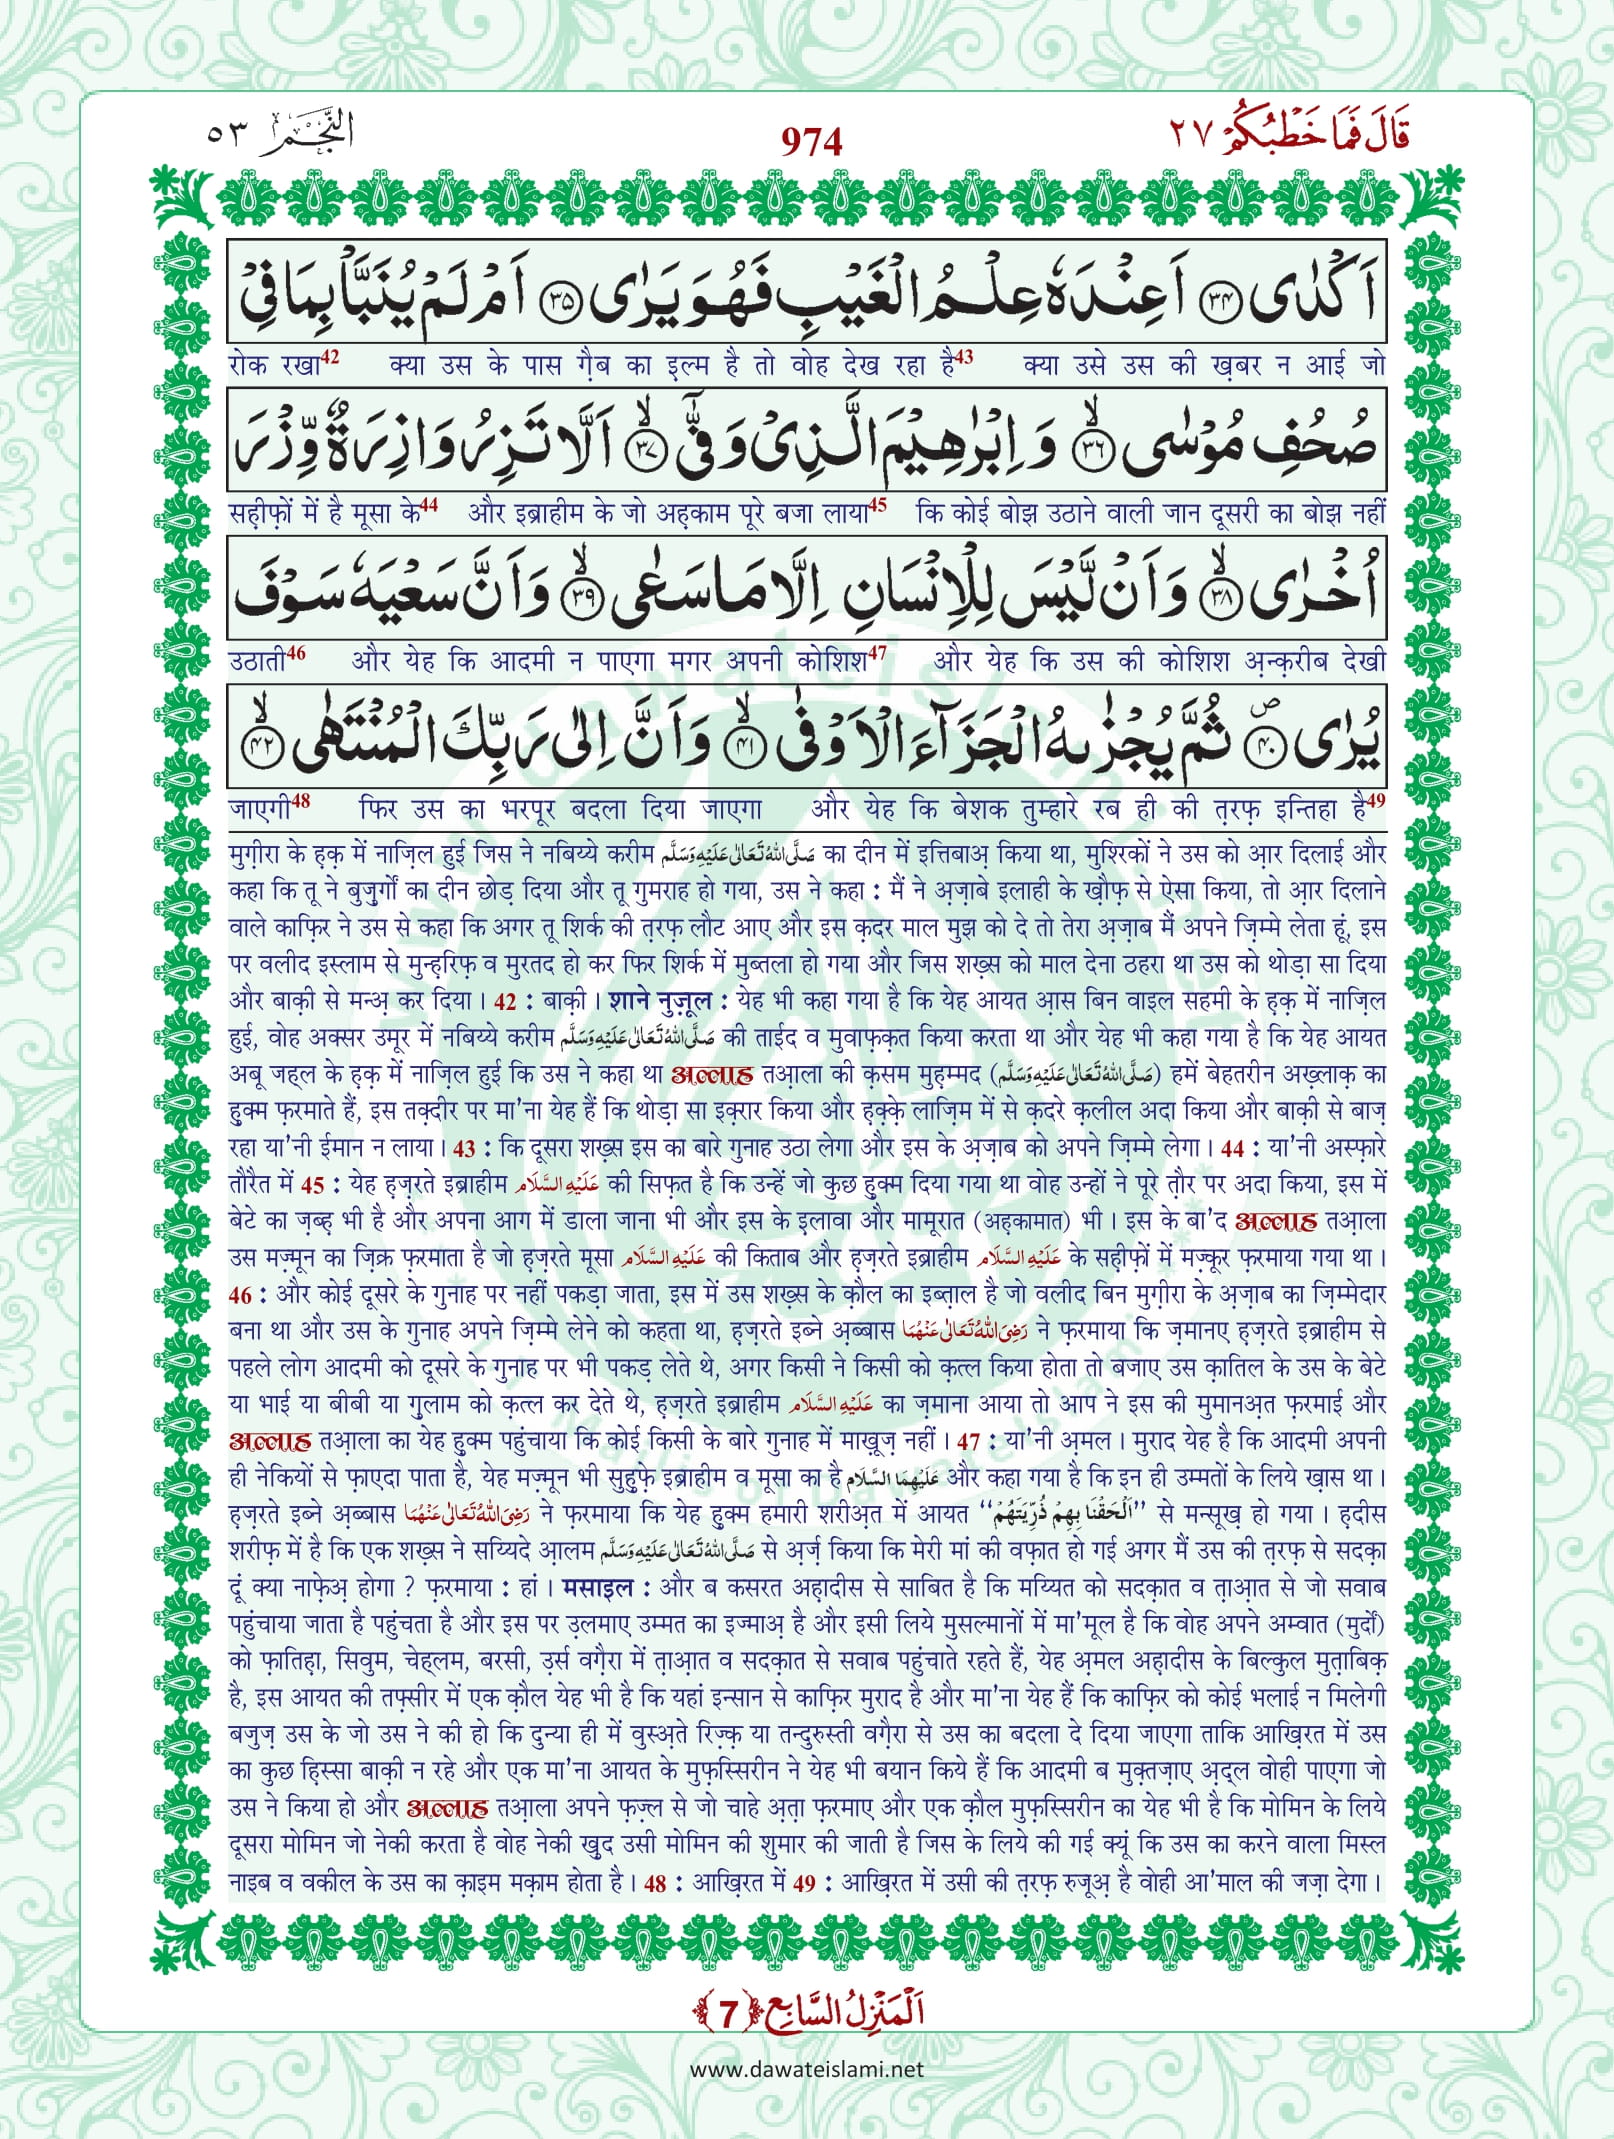 النَّجْم ٥٣
974
قَالَ فَمَا خَطْبُكُمْ ٢٧
اَكْدٰى ﴿۳۴﴾ اَعِنْدَهٗ عِلْمُ الْغَیْبِ فَهُوَ یَرٰى ﴿۳۵﴾ اَمْ لَمْ یُنَبَّاْ بِمَا فِیْ
रोक रखा42 क्या उस के पास ग़ैब का इल्म है तो वोह देख रहा है43 क्या उसे उस की ख़बर न आई जो
صُحُفِ مُوْسٰى ﴿۳۶﴾ۙ وَ اِبْرٰهِیْمَ الَّذِیْ وَفّٰۤى ﴿۳۷﴾ۙ اَلَّا تَزِرُ وَازِرَةٌ وِّزْرَ
सह़ीफ़ों में है मूसा के44 और इब्राहीम के जो अह़काम पूरे बजा लाया45 कि कोई बोझ उठाने वाली जान दूसरी का बोझ नहीं
اُخْرٰى ﴿۳۸﴾ۙ وَ اَنْ لَّیْسَ لِلْاِنْسَانِ اِلَّا مَا سَعٰى ﴿۳۹﴾ۙ وَ اَنَّ سَعْیَهٗ سَوْفَ
उठाती46 और येह कि आदमी न पाएगा मगर अपनी कोशिश47 और येह कि उस की कोशिश अ़न्क़रीब देखी
یُرٰى ﴿۴۰﴾ص ثُمَّ یُجْزٰىهُ الْجَزَآءَ الْاَوْفٰى ﴿۴۱﴾ۙ وَ اَنَّ اِلٰى رَبِّكَ الْمُنْتَهٰى ﴿۴۲﴾ۙ
जाएगी48 फिर उस का भरपूर बदला दिया जाएगा और येह कि बेशक तुम्हारे रब ही की त़रफ़ इन्तिहा है49
मुग़ीरा के ह़क़ में नाज़िल हुई जिस ने नबिय्ये करीम صَلَّى اللهُ تَعَالٰى عَلَيْهِ وَسَلَّم का दीन में इत्तिबाअ़ किया था, मुश्रिकों ने उस को आ़र दिलाई और
कहा कि तू ने बुज़ुर्गों का दीन छोड़ दिया और तू गुमराह हो गया, उस ने कहा : मैं ने अ़ज़ाबे इलाही के ख़ौफ़ से ऐसा किया, तो आ़र दिलाने
वाले काफ़िर ने उस से कहा कि अगर तू शिर्क की त़रफ़ लौट आए और इस क़दर माल मुझ को दे तो तेरा अ़ज़ाब मैं अपने ज़िम्मे लेता हूं, इस
पर वलीद इस्लाम से मुन्ह़रिफ़ व मुरतद हो कर फिर शिर्क में मुब्तला हो गया और जिस शख़्स को माल देना ठहरा था उस को थोड़ा सा दिया
और बाक़ी से मन्अ़ कर दिया। 42 : बाक़ी। शाने नुज़ूल : येह भी कहा गया है कि येह आयत आ़स बिन वाइल सहमी के ह़क़ में नाज़िल
हुई, वोह अक्सर उमूर में नबिय्ये करीम صَلَّى اللهُ تَعَالٰى عَلَيْهِ وَسَلَّم की ताईद व मुवाफ़क़त किया करता था और येह भी कहा गया है कि येह आयत
अबू जह्ल के ह़क़ में नाज़िल हुई कि उस ने कहा था अल्लाह तआ़ला की क़सम मुह़म्मद (صَلَّى اللهُ تَعَالٰى عَلَيْهِ وَسَلَّم) हमें बेहतरीन अख़्लाक़ का
हुक्म फ़रमाते हैं, इस तक़्दीर पर मा'ना येह हैं कि थोड़ा सा इक़्रार किया और ह़क़्क़े लाज़िम में से क़दरे क़लील अदा किया और बाक़ी से बाज़
रहा या'नी ईमान न लाया। 43 : कि दूसरा शख़्स इस का बारे गुनाह उठा लेगा और इस के अ़ज़ाब को अपने ज़िम्मे लेगा। 44 : या'नी अस्फ़ारे
तौरैत में 45 : येह ह़ज़रते इब्राहीम عَلَيْهِ السَّلَام की सिफ़त है कि उन्हें जो कुछ हुक्म दिया गया था वोह उन्हों ने पूरे त़ौर पर अदा किया, इस में
बेटे का ज़ब्ह़ भी है और अपना आग में डाला जाना भी और इस के इलावा और मामूरात (अह़कामात) भी। इस के बा'द अल्लाह तआ़ला
उस मज़्मून का ज़िक्र फ़रमाता है जो ह़ज़रते मूसा عَلَيْهِ السَّلَام की किताब और ह़ज़रते इब्राहीम عَلَيْهِ السَّلَام के सह़ीफ़ों में मज़्कूर फ़रमाया गया था।
46 : और कोई दूसरे के गुनाह पर नहीं पकड़ा जाता, इस में उस शख़्स के क़ौल का इब्त़ाल है जो वलीद बिन मुग़ीरा के अ़ज़ाब का ज़िम्मेदार
बना था और उस के गुनाह अपने ज़िम्मे लेने को कहता था, ह़ज़रते इब्ने अ़ब्बास رَضِىَ اللهُ تَعَالٰى عَنْهُمَا ने फ़रमाया कि ज़मानए ह़ज़रते इब्राहीम से
पहले लोग आदमी को दूसरे के गुनाह पर भी पकड़ लेते थे, अगर किसी ने किसी को क़त्ल किया होता तो बजाए उस क़ातिल के उस के बेटे
या भाई या बीबी या ग़ुलाम को क़त्ल कर देते थे, ह़ज़रते इब्राहीम عَلَيْهِ السَّلَام का ज़माना आया तो आप ने इस की मुमानअ़त फ़रमाई और
अल्लाह तआ़ला का येह हुक्म पहुंचाया कि कोई किसी के बारे गुनाह में माख़ूज़ नहीं। 47 : या'नी अ़मल। मुराद येह है कि आदमी अपनी
ही नेकियों से फ़ाएदा पाता है, येह मज़्मून भी सुह़ुफ़े इब्राहीम व मूसा का है عَلَيْهِمَا السَّلَام और कहा गया है कि इन ही उम्मतों के लिये ख़ास था।
ह़ज़रते इब्ने अ़ब्बास رَضِىَ اللهُ تَعَالٰى عَنْهُمَا ने फ़रमाया कि येह हुक्म हमारी शरीअ़त में आयत ‘‘اَلْحَقْنَا بِهِمْ ذُرِّيَّتَهُمْ’’ से मन्सूख़ हो गया। ह़दीस
शरीफ़ में है कि एक शख़्स ने सय्यिदे आ़लम صَلَّى اللهُ تَعَالٰى عَلَيْهِ وَسَلَّم से अ़र्ज़ किया कि मेरी मां की वफ़ात हो गई अगर मैं उस की त़रफ़ से सदक़ा
दूं क्या नाफ़ेअ़ होगा ? फ़रमाया : हां। मसाइल : और ब कसरत अह़ादीस से साबित है कि मय्यित को सदक़ात व त़ाआ़त से जो सवाब
पहुंचाया जाता है पहुंचता है और इस पर उ़लमाए उम्मत का इज्माअ़ है और इसी लिये मुसल्मानों में मा'मूल है कि वोह अपने अम्वात (मुर्दों)
को फ़ातिह़ा, सिवुम, चेह्लम, बरसी, उ़र्स वग़ैरा में त़ाआ़त व सदक़ात से सवाब पहुंचाते रहते हैं, येह अ़मल अह़ादीस के बिल्कुल मुत़ाबिक़
है, इस आयत की तफ़्सीर में एक क़ौल येह भी है कि यहां इन्सान से काफ़िर मुराद है और मा'ना येह हैं कि काफ़िर को कोई भलाई न मिलेगी
बजुज़ उस के जो उस ने की हो कि दुन्या ही में वुस्अ़ते रिज़्क़ या तन्दुरुस्ती वग़ैरा से उस का बदला दे दिया जाएगा ताकि आख़िरत में उस
का कुछ ह़िस्सा बाक़ी न रहे और एक मा'ना आयत के मुफ़स्सिरीन ने येह भी बयान किये हैं कि आदमी ब मुक़्तज़ाए अ़द्ल वोही पाएगा जो
उस ने किया हो और अल्लाह तआ़ला अपने फ़ज़्ल से जो चाहे अ़त़ा फ़रमाए और एक क़ौल मुफ़स्सिरीन का येह भी है कि मोमिन के लिये
दूसरा मोमिन जो नेकी करता है वोह नेकी ख़ुद उसी मोमिन की शुमार की जाती है जिस के लिये की गई क्यूं कि उस का करने वाला मिस्ल
नाइब व वकील के उस का क़ाइम मक़ाम होता है। 48 : आख़िरत में 49 : आख़िरत में उसी की त़रफ़ रुजूअ़ है वोही आ'माल की जज़ा देगा।
اَلْمَنْزِلُ السَّابِع ﴿7﴾
www.dawateislami.net